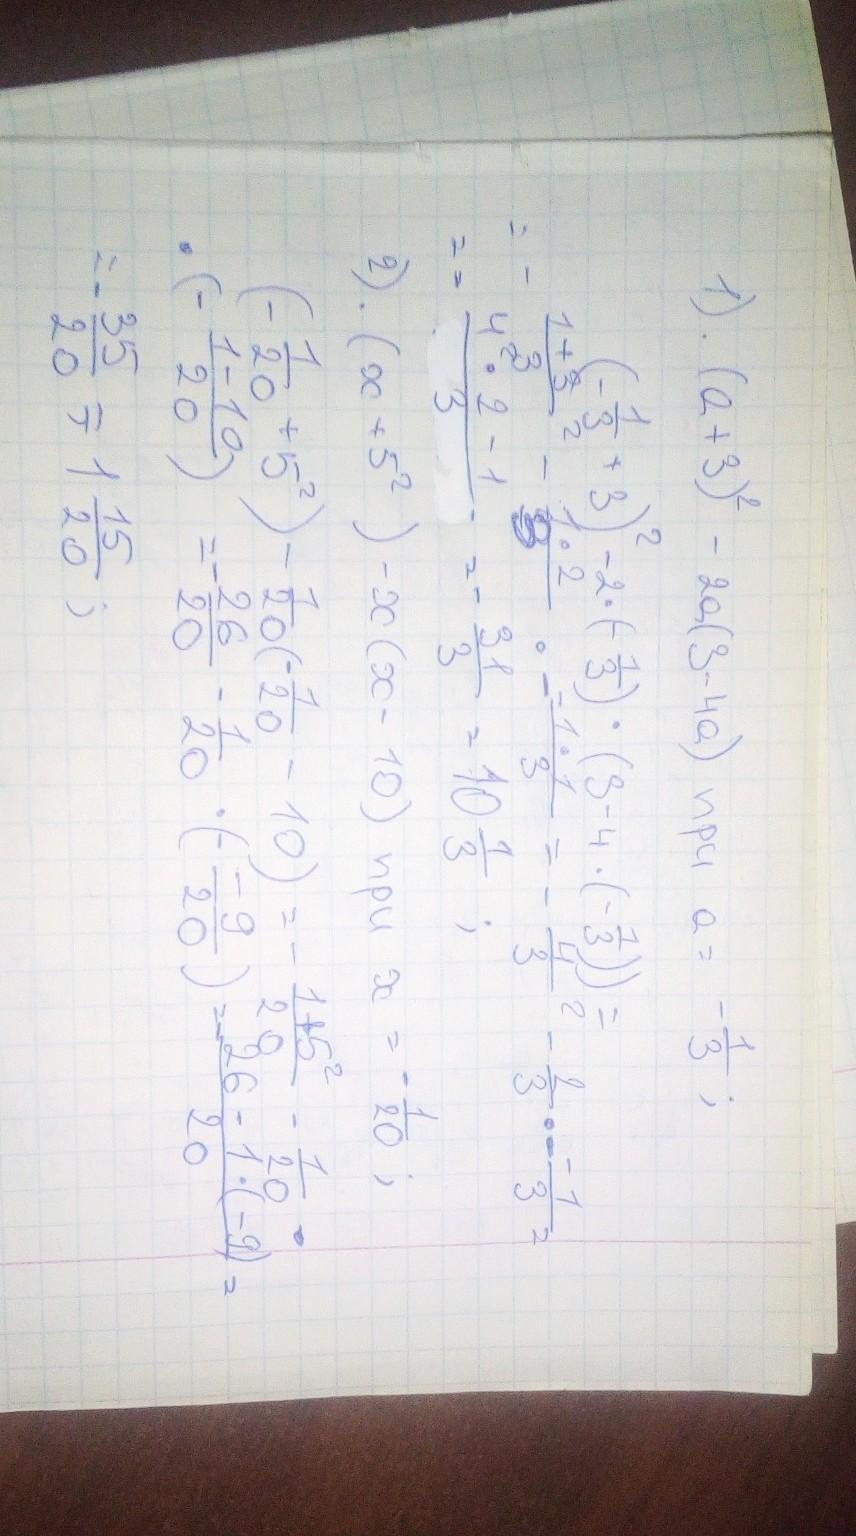 1). (a+3)² - 2a(3-4a) при a = -1/3;
(-1/3 + 3)² - 2·(-1/3)·(3-4·(-1/3)) =
= - (1+3)/3 ² - 1·2/3 · - -1·1/3 = - 4/3 ² - 2/3 · - -1/3 =
= - (4²·2-1)/3 = - 31/3 = 10 1/3;
2). (x+5²) - x(x-10) при x = -1/20;
(-1/20 + 5²) - 1/20(-1/20 - 10) = - (1+5²)/20 - 1/20 ·
·(- (1-10)/20) = - 26/20 - 1/20 · (- -9/20) = - (26-1·(-9))/20 =
= - 35/20 = 1 15/20;